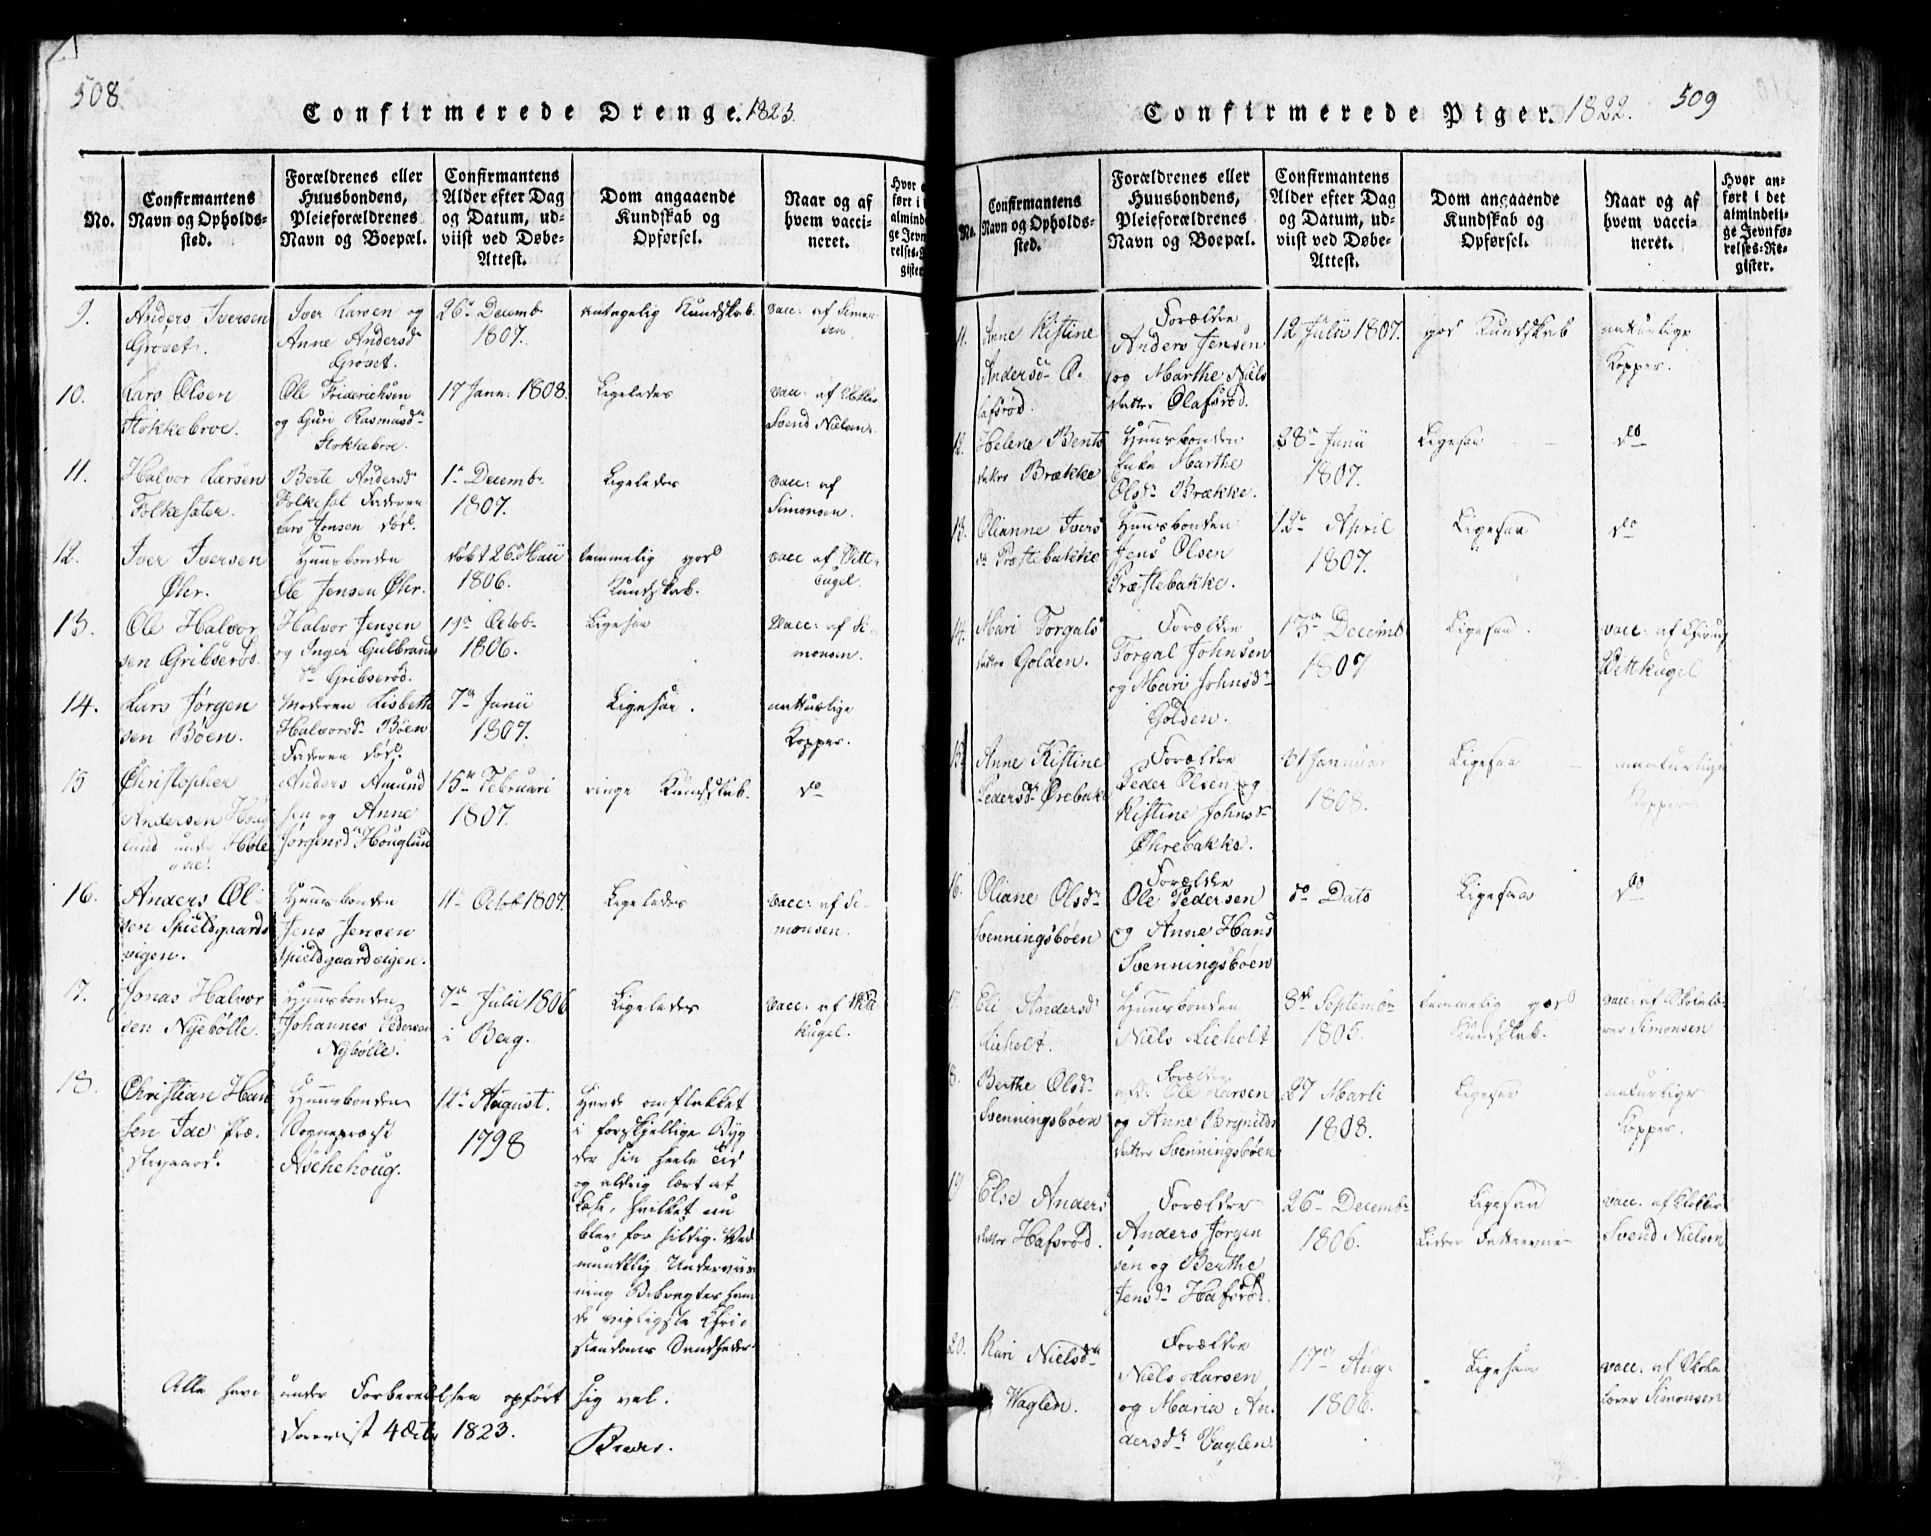 508
Confirmerede Drenge. 1823.
No.
Confirmantens
Navn og Opholds-
sted.
Forældrenes eller
Huusbondens,
Pleieforældrenes
Navn og Boepæl.
Confirmantens
Alder efter Dag
og Datum, ud-
viist ved Døbe-
Attest.
Dom angaaende
Kundskab og
Opførsel.
Naar og af
hvem vacci-
neret.
9.
Anders Iversen
Grøvet.
Iver Larsen og
Anne Andersd
Grøvet.
26 Decemb
1807.
antagelig Kundskab.
vacc: af Simon-
sen
10.
Lars Olsen
Stokkebroe.
Ole Friderichsen
og Guri Rasmusd
Stokkebroe.
17 Janu: 1808.
Ligeledes
vacc: af
Svend Nielsen.
11.
Halvor Larsen
Folkesæter.
Berte Andersd
Folkesæt Faderen
Lars Jensen død.
1 Decemb
1807.
Ligeledes
vacc: af
Simonsen.
12.
Iver Iversen
Øhr.
Huusbonden
Ole Jensen Øhr.
døbt 26 Maii
1806.
temmelig god
Kundskab.
vacc af Vitt-
kugel.
13.
Ole Halvor
sen Gribserød.
Halvor Jensen
og Inger Gulbrands
dr Gribserød.
19 Octob
1806.
Ligesaa
Vacc: af Si-
monsen.
14.
Lars Jørgen
sen Bøen.
Moderen Lisbeth
Halvorsd Bøen
Faderen død.
7 Junii
1807.
Ligesaa.
naturlige
Kopper.
15
Christopher
Andersen Houg
lund under Hole
Anders Amund
sen og Anne
Jørgensd Houglund
15 Februari
1807.
ringe Kundskab.
do
16.
Anders Ol-
sen Spieldgaards
vigen.
Huusbonden
Jens Jensen
Spieldgaardvigen.
11 Octob 1807.
Ligeledes
vacc: af Si-
monsen.
17.
Jonas Halvor
sen Nyebølle.
Huusbonden
Johannes Pedersen
Nybølle.
7 Julii 1806
i Berg.
Ligeledes
vacc: af Vitt
kugel.
18.
Christian Han
sen Ide Præ-
stegaard.
Huusbonden
Sognepræst
Aschehoug.
12 August.
1798
Havde omflakket
i forskjellige Byg
der sin heele Tid
og aldrig lært at
læse, hvilket nu
blev for sildig. Ved
mundtlig Underviis
ning bibragtes ham
de vigtigste Chri
stendoms Sandheder
Alle have under Forberedelsen opført sig vel.
4 Octb 1823.
509
Confirmerede Piger. 1822.
No.
Confirmantens
Navn og Opholds-
sted.
Forældrenes eller
Huusbondens,
Pleieforældrenes
Navn og Boepæl.
Confirmantens
Alder efter Dag
og Datum, ud-
viist ved Døbe-
Attest.
Dom angaaende
Kundskab og
Opførsel.
Naar og af
hvem vacci-
neret.
Hvor an-
ført i det
almindeli-
ge Jevnfø-
relses-Re-
gister.
11.
Anne Kistine
Andersd O-
lafsrød.
Forældre
Anders Jensen
og Marthe Niels
datter Olafsrød.
12 Julii 1807.
god Kundskab
naturlige
Kopper.
12.
Helene Bents
datter Brække
Huusbonden
Enke Marthe
Olsd Brække.
28 Junii
1807.
Ligesaa
do
13.
Olianne Ivers
dr Præstebakke
Huusbonden
Jens Olsen
Præstebakke.
12 April
1807.
Ligesaa
do
14.
Mari Torgals
datter Golden.
Forældre
Torgal Johnsen
og Mari Johnsd
Golden.
13 Decemb
1807
Ligesaa.
vacc: af Chirurg
Vittkugel
15.
Anne Kistine
Pedersd Ørebakke
Forældre
Peder Olsen og
Kistine Johnsd
Øhrebakke.
31 Januar
1808.
Ligesaa
naturlige
Kopper
16.
Oliane Olsd
Svenningsbøen
Forældre
Ole Pedersen
og Anne Hans
Svenningsbøen
do Dato
Ligesaa
do
17.
Eli Andersd
Lieholt.
Huusbonden
Niels Lieholt
8 Septemb
1805.
temmelig god
Kundskab.
vacc: af Skolelæ-
rer Simonsen
18.
Berthe Olsd
Svenningsbøen
Forældre
Ole Larsen
og Anne Brynilds
datter Svenningsbøen
27 Marti
1808.
Ligesaa
naturlige
Kopper.
19
Else Anders
datter Hafsrød.
Forældre
Anders Jørgen
sen og Berthe
Jensd Hafsrød.
26 Decemb
1806.
Ligesaa
liden Fatteevne
vacc. af Klokker
Svend Nielsen
20.
Kari Nielsd
Waglen.
Forældre
Niels Larsen
og Maria An-
dersd Vaglen.
17 Aug.
1806.
Ligesaa
vacc: af Skole
lærer Simonsen